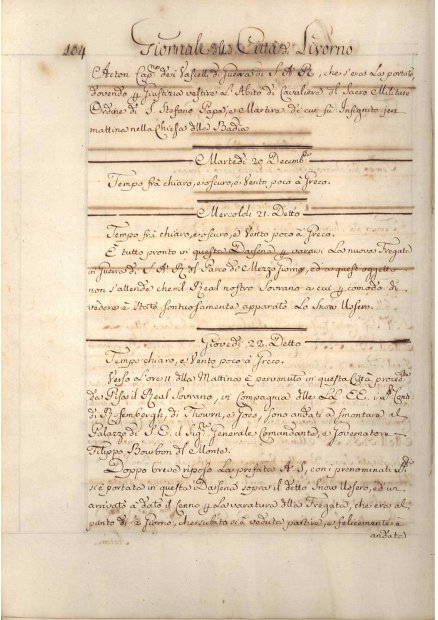 104 Giornale della Città di Livorno
Acton Cap.no dei Vascelli di Guerra di S. A. R., che s'era là portato
dovendo p Giustizia vestire l'Abito di Cavaliere del Sacro Militare
Ordine di S. Stefano Papa, e Martire di cui fù Insignito jeri
mattina nella Chiesa della Badia.
Martedì 20 Decembre
Tempo frà chiaro, e oscuro, e Vento poco à Greco.
Mercoldì 21. Detto
Tempo frà chiaro, e oscuro, e Vento poco à Greco.
È tutto pronto in questa Darsena p vararsi la nuova Fregata
in Guerra di S. A. R. del Parco di Mezzo Giorno, ed a quest oggetto
non s'attende che il Real nostro Sovrano a cui p comodo di
vedere è stato sontuosamente apparato lo Snow Ussero.
Giovedì 22. Detto
Tempo chiaro, e Vento poco à Greco.
Verso l'ore 11 della Mattina è pervenuto in questa Città proced.te
da Pisa il Real Sovrano, in Compagnia delle LL. EE. i SS.ri Conti
di Rosembergh, di Thourn, e Goes, sono andati à smontare al
Palazzo di S. E. il Sig.r Generale Comandante, e Governatore
Filippo Bourbon del Monte.
Doppo breve riposo la prefata A. S., con i prenominati
si è portata in questa Darsena sopra il detto Snow Ussero, ed ivi
arrivato à dato il cenno p la varatura della Fregata, che era al
punto di ½ Giorno, che subito si è veduta partire, e felicemente è
andata